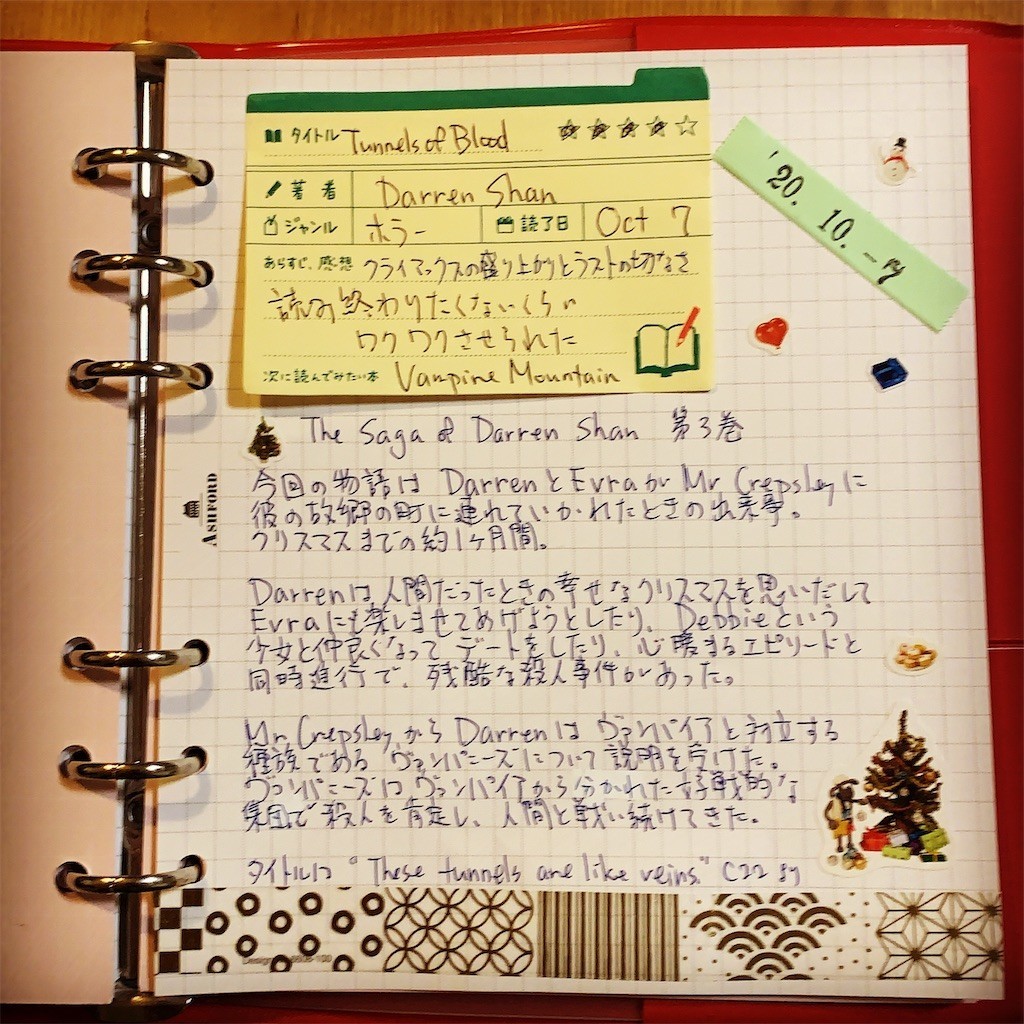 タイトル Tunnels of Blood
'20. 10. -7
著者 Darren Shan
ジャンル ホラー 読了日 Oct 7
あらすじ、感想 クライマックスの盛り上がりとラストの切なさ
読み終わりたくないくらい
ワクワクさせられた
次に読んでみたい本 Vampire Mountain
The Saga of Darren Shan 第3巻
ASHFORD
今回の物語は DarrenとEvraが Mr Crepsleyに
彼の故郷の町に連れていかれたときの出来事。
クリスマスまでの約1ヶ月間。
Darrenは人間だったときの幸せなクリスマスを思いだして
Evraにも楽しませてあげようとしたり、Debbieという
少女と仲良くなってデートをしたり、心暖まるエピソードと
同時進行で、残酷な殺人事件があった。
Mr CrepsleyからDarrenはヴァンパイアと対立する
種族であるヴァンパニーズについて説明を受けた。
ヴァンパニーズはヴァンパイアから分かれた好戦的な
集団で殺人を肯定し、人間と戦い続けてきた。
タイトルは "These tunnels are like veins." C22 より